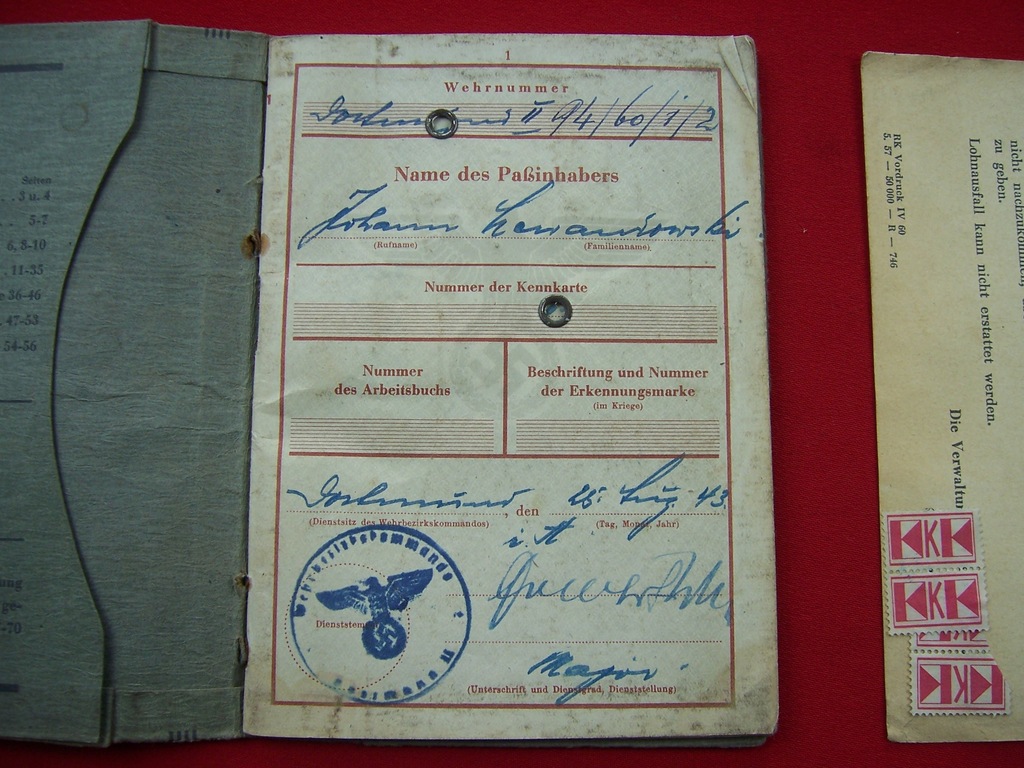 Seiten
. . 3 u. 4
5-7
6, 8-10
. 11-35
e 36-46
. 47-53
54-56
ung
ge-
-70
1
Wehrnummer
Dortmund II 94/60/1/2
Name des Paßinhabers
Johann Lewandowski
(Rufname) (Familienname)
Nummer der Kennkarte
Nummer
des Arbeitsbuchs
Beschriftung und Nummer
der Erkennungsmarke
(im Kriege)
Dortmund, den 25. Aug. 43
(Dienstsitz des Wehrbezirkskommandos) (Tag, Monat, Jahr)
Wehrbezirkskommando
Dortmund II
Dienststempel
Major.
(Unterschrift und Dienstgrad, Dienststellung)
nicht nachzukommen,
zu geben.
Lohnausfall kann nicht erstattet werden.
Die Verwaltun
RK Vordruck IV 60
5. 57 — 50 000 — R — 746
KKK
KKK
KKK